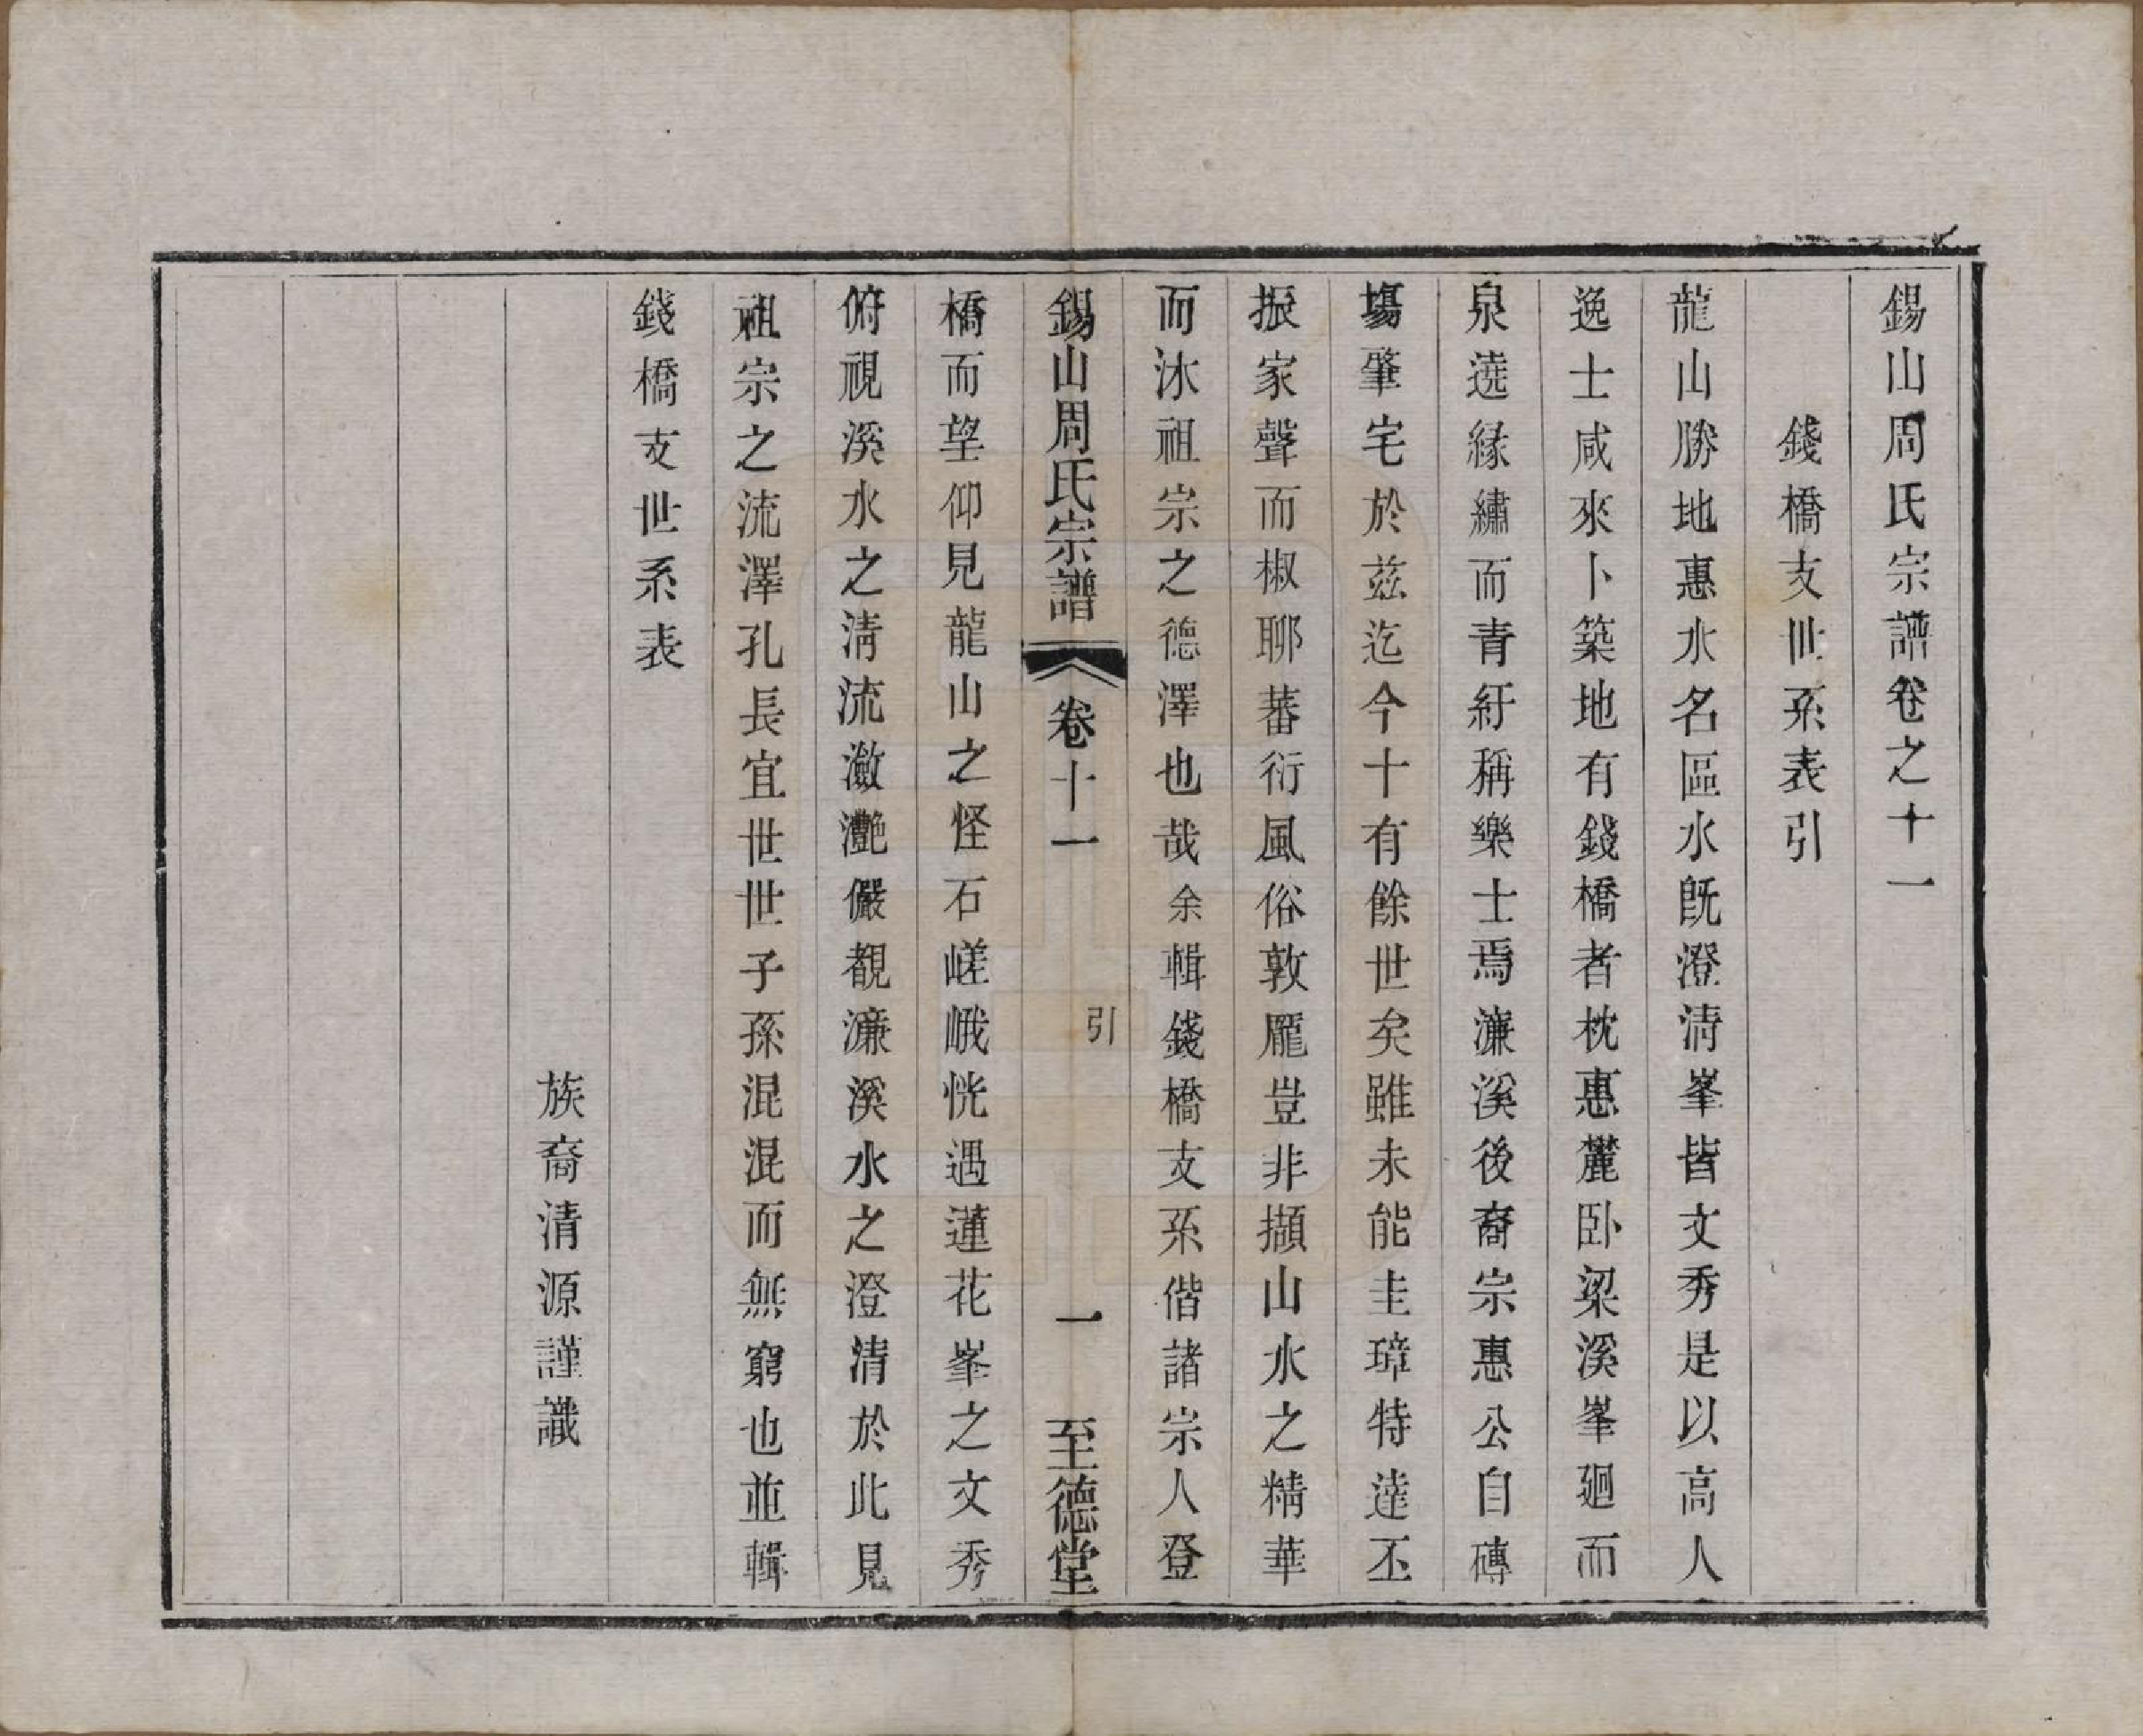 錫山周氏宗譜卷之十一
錢橋支世系表引
龍山勝地惠水名區水既澄清峯皆文秀是以高人
逸士咸來卜築地有錢橋者枕惠麓卧梁溪峯廻而
泉遶緣繡而青紆稱樂士焉濂溪後裔宗惠公自磚
塲肇宅於茲迄今十有餘世矣雖未能圭璋特達丕
振家聲而椒聊蕃衍風俗敦龎豈非擷山水之精華
而沐祖宗之德澤也哉余輯錢橋支系偕諸宗人登
錫山周氏宗譜 卷十一 引 一 至德堂
橋而望仰見龍山之怪石嵯峨恍遇蓮花峯之文秀
俯視溪水之清流瀲灔儼覩濂溪水之澄清於此見
祖宗之流澤孔長宜世世子孫混混而無窮也並輯
錢橋支世系表
族裔清源謹識